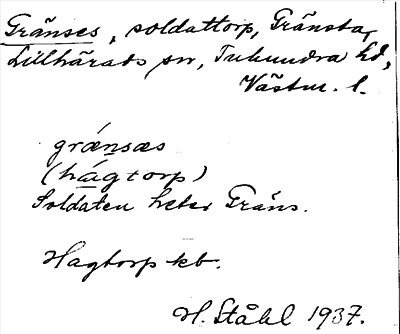 Gränses, soldattorp, Gränsta,
Lillhärads sn, Tuhundra hd,
Västm. l.
grǽnsæs
(hágtorp)
Soldaten heter Gräns.
Hagtorp kb.
H. Ståhl 1937.